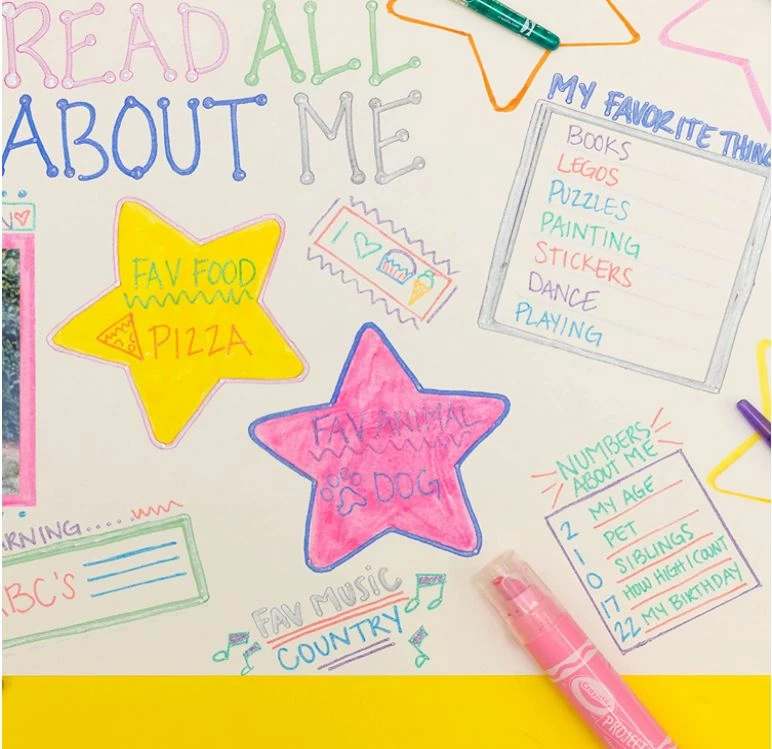 READ ALL
ABOUT ME
MY FAVORITE THIN
BOOKS
LEGOS
PUZZLES
PAINTING
STICKERS
DANCE
PLAYING
I
FAV FOOD
PIZZA
FAV ANIMAL
DOG
NUMBERS
ABOUT ME
2 MY AGE
1 PET
0 SIBLINGS
17 HOW HIGH I COUNT
22 MY BIRTHDAY
RNING.....
ABC'S
FAV MUSIC
COUNTRY
Crayola
PROJECT